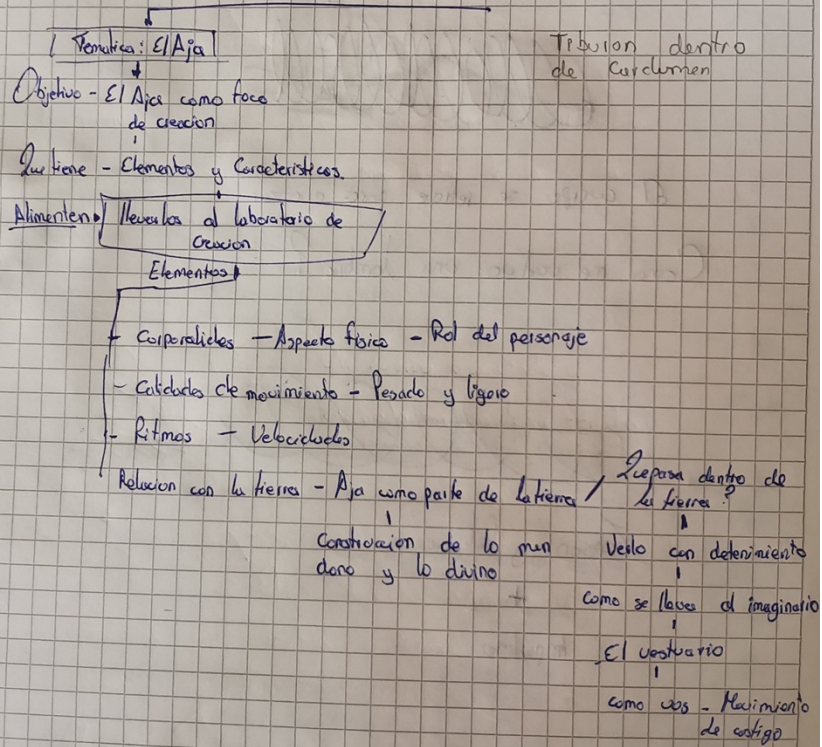 Tematica: El Aja
Tiburon dentro
de Curdumen
Objetivo - El Aja como foco
de creacion
Que tiene - Elementos y Caracteristicas.
Alimenten llevarlos al laboratorio de
Creacion
Elementos
- Corporalides - Aspecto fisico - Rol del personaje
- Calidades de movimiento - Pesado y ligero
- Ritmos - Velocidades
Relacion con la tierra - Aja como parte de la tierra / Que pasa dentro de
la tierra?
Construccion de lo mun
dano y lo divino
Verlo con detenimiento
como se lleva al imaginario
El vestuario
como vos - Movimiento
de castigo